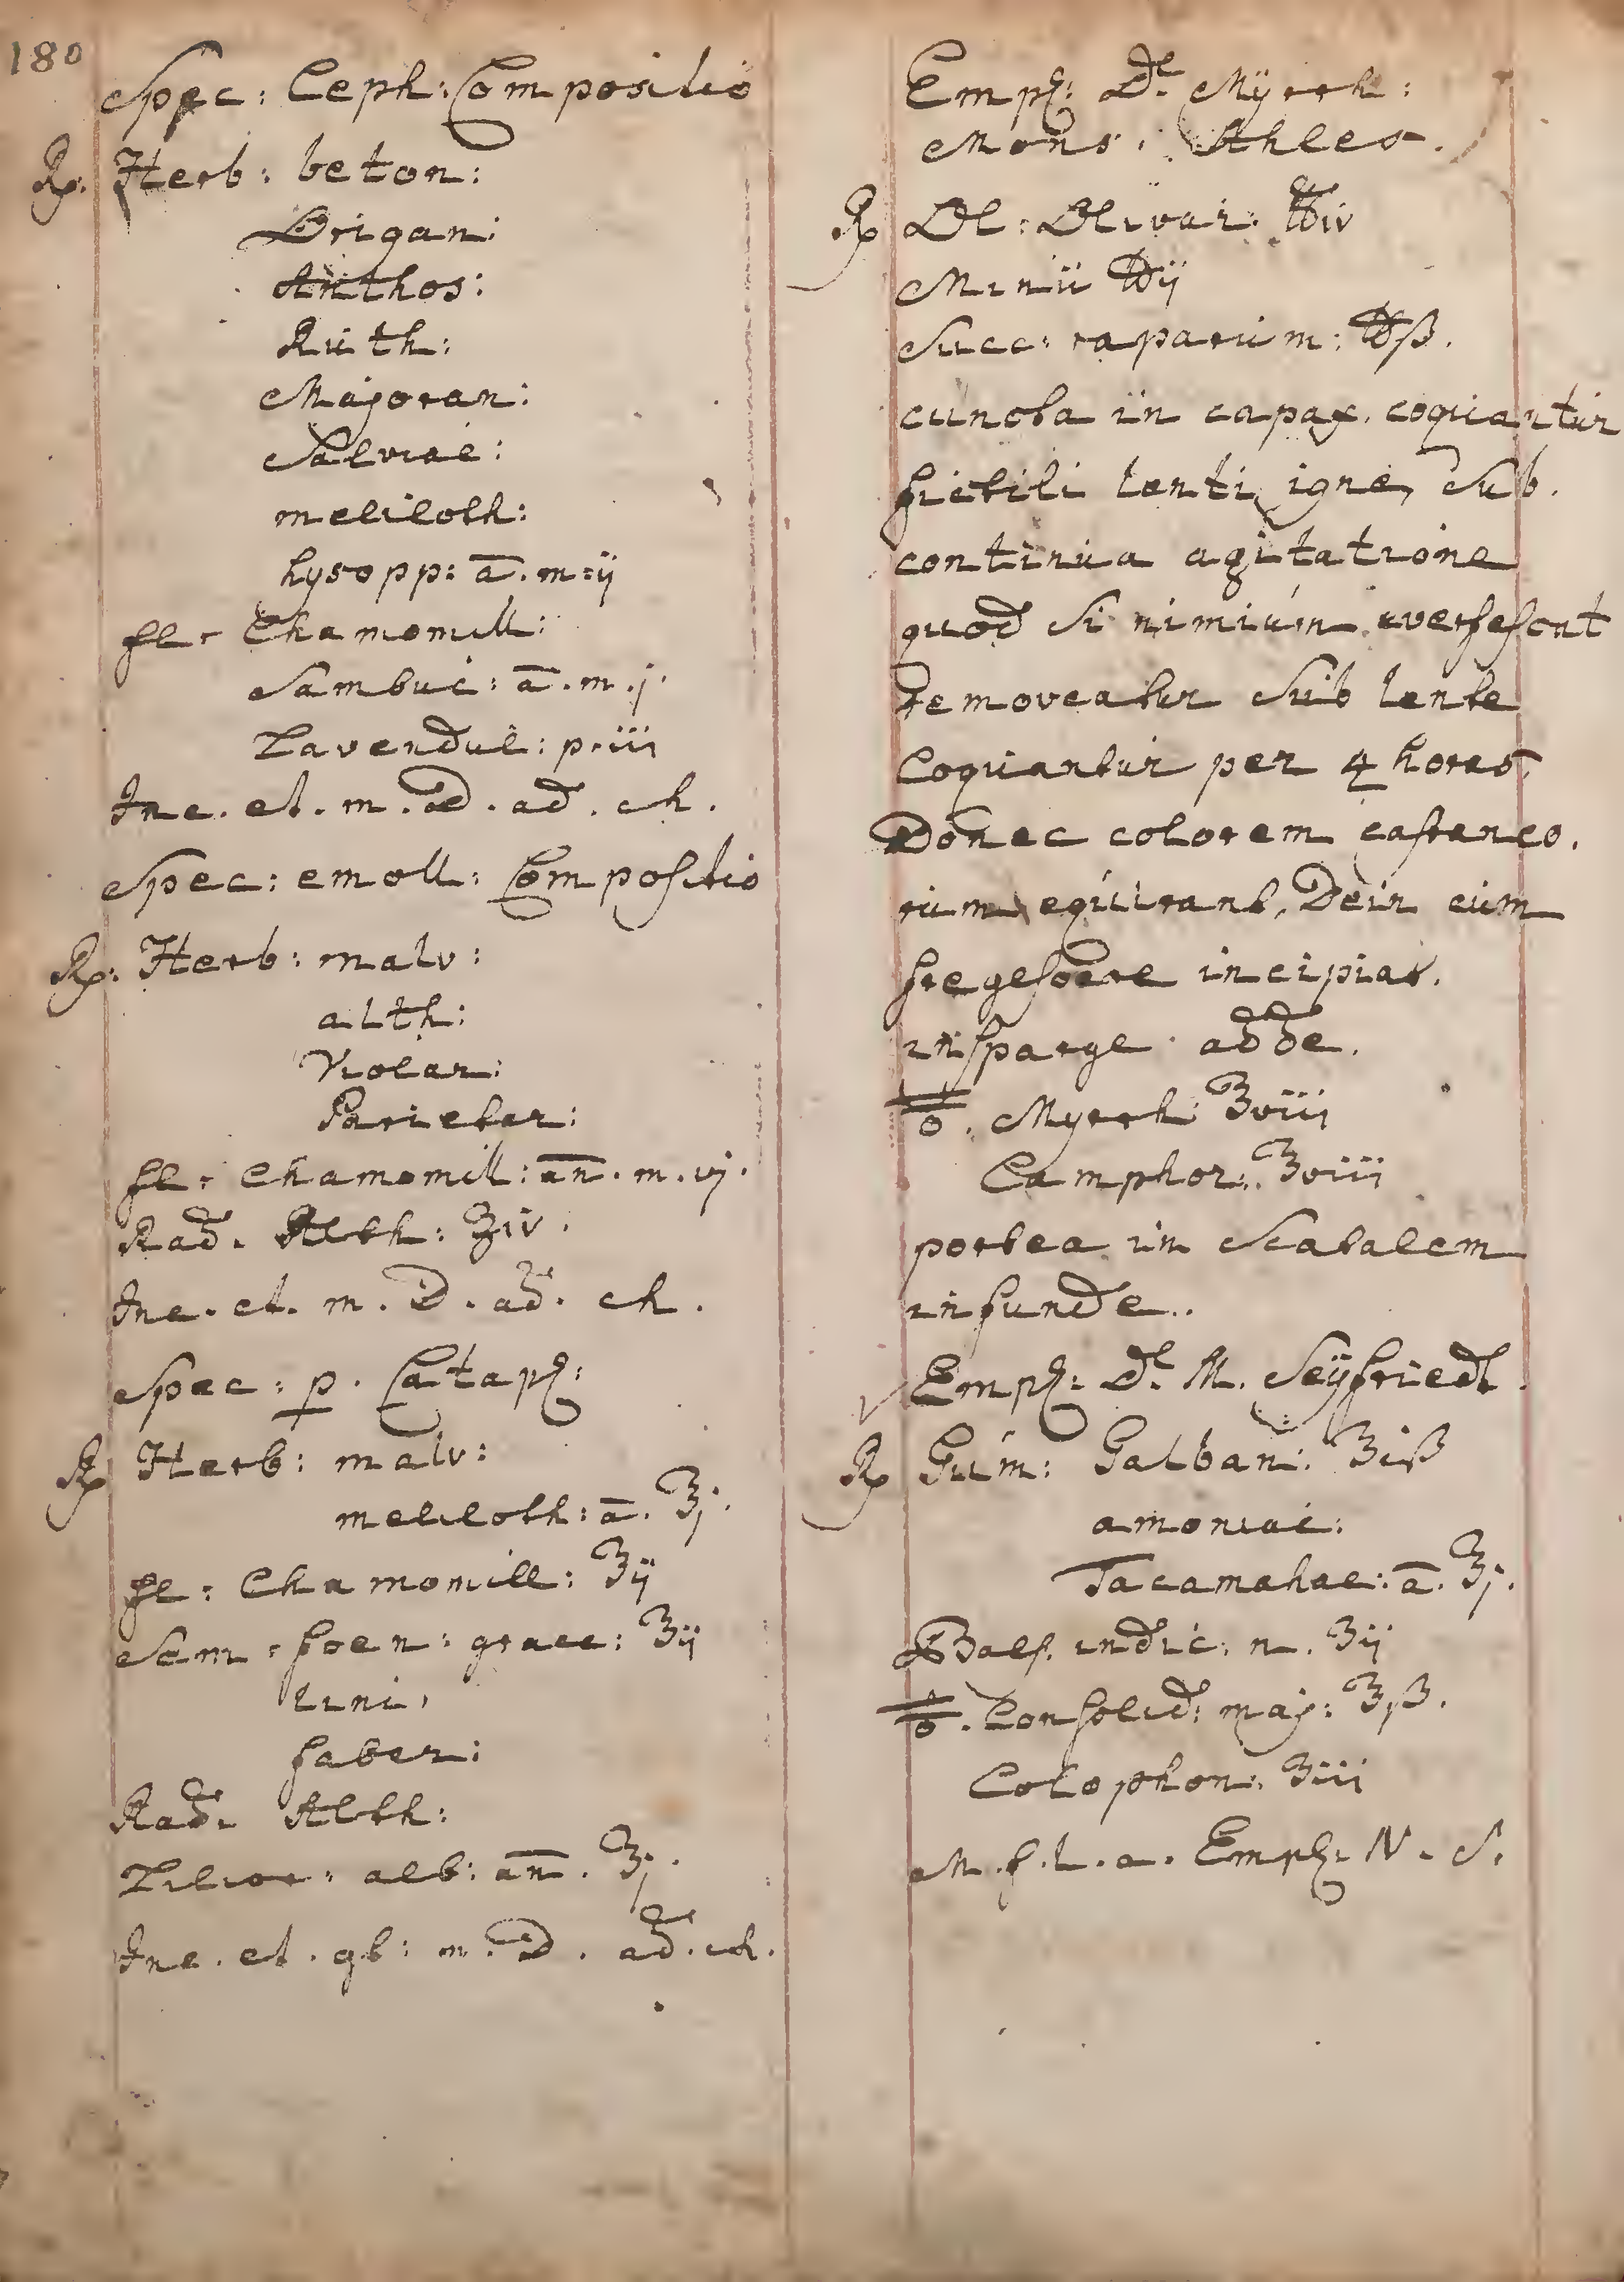 180
Spec: Ceph: Compositio
Rp. Herb: beton:
Origan:
Anthos:
Ruth:
Majoran:
Salviae:
meliloth:
hysopp: ā. m. ij
fl. Chamomill:
Sambuc: ā. m. j.
Lavendul: p. iii
Inc. et. m. D. ad. ch.
Spec: emoll: Compositio
Rp. Herb: malv:
alth:
Violar:
Parietar:
fl. Chamomill: an̄. m. vj.
Rad. Alth: ℥iv.
Inc. et. m. D. ad. ch.
Spec: p. Catapl:
Rp Herb: malv:
meliloth: ā. ℥j.
fl: Chamomill: ℥ij
Sem: foen: graec: ℥ij
lini,
faber:
Rad. Alth:
Lilior: alb: an̄. ℥j.
Inc. et. gb: m. D. ad. ch.
Empl: De Myrrh:
Mons: Ahles.
Rp Ol: Olivar: ℔iv
Minii ℔ij
Succ: raparum: ℔ß.
cuncta in capax. coquantur
fictili lenti igne, Sub.
continua agitatione
quod Si nimium
removeatur Sub lente
Coquantur per 4 horas.
Donec colorem castaneo.
rum equirant, Dein cum
incipiat.
insparge adde.
Myrrh: ℥viii
Camphor: ℥viii
portea in Scatalem
infunde..
Empl: De M. Seyfriedt.
Rp Gum: Galban: ℥iß
amoniac:
Tacamahac: ā. ℥j.
Bals. indic: n. ℥ij
Consolid: maj: ℥jß.
Colophon: ℥iii
M. f. L. a. Empl: N. S.